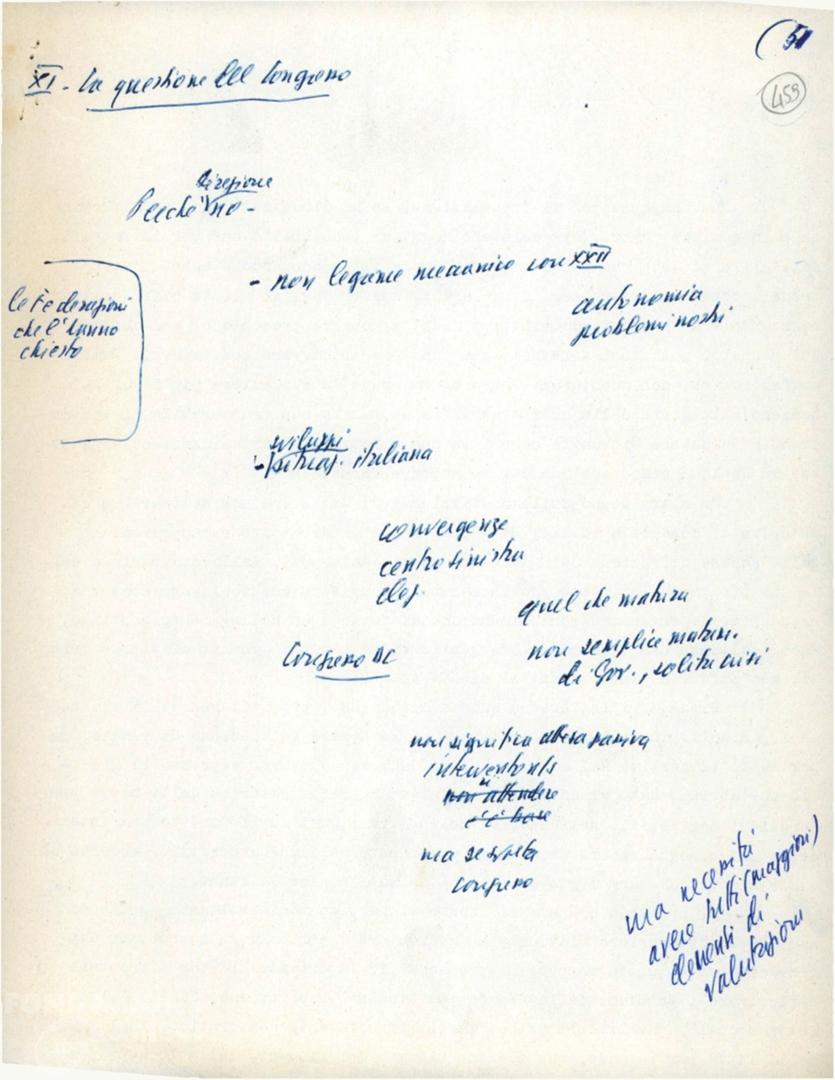 51
459
XI - La questione del Congresso
Direzione
Perché no -
- non legame meccanico con XXII
autonomia
problemi nostri
le Federazioni
che l'hanno
chiesto
sviluppi
- situaz. italiana
convergenze
centro sinistra
elez.
quel che matura
non semplice matur.
di Gov., solita crisi
Congresso DC
non significa attesa passiva
intervento ns
non attendere
c'è base
ma se si sta
Congresso
ma necessità
avere tutti (maggiori)
elementi di
valutazioni